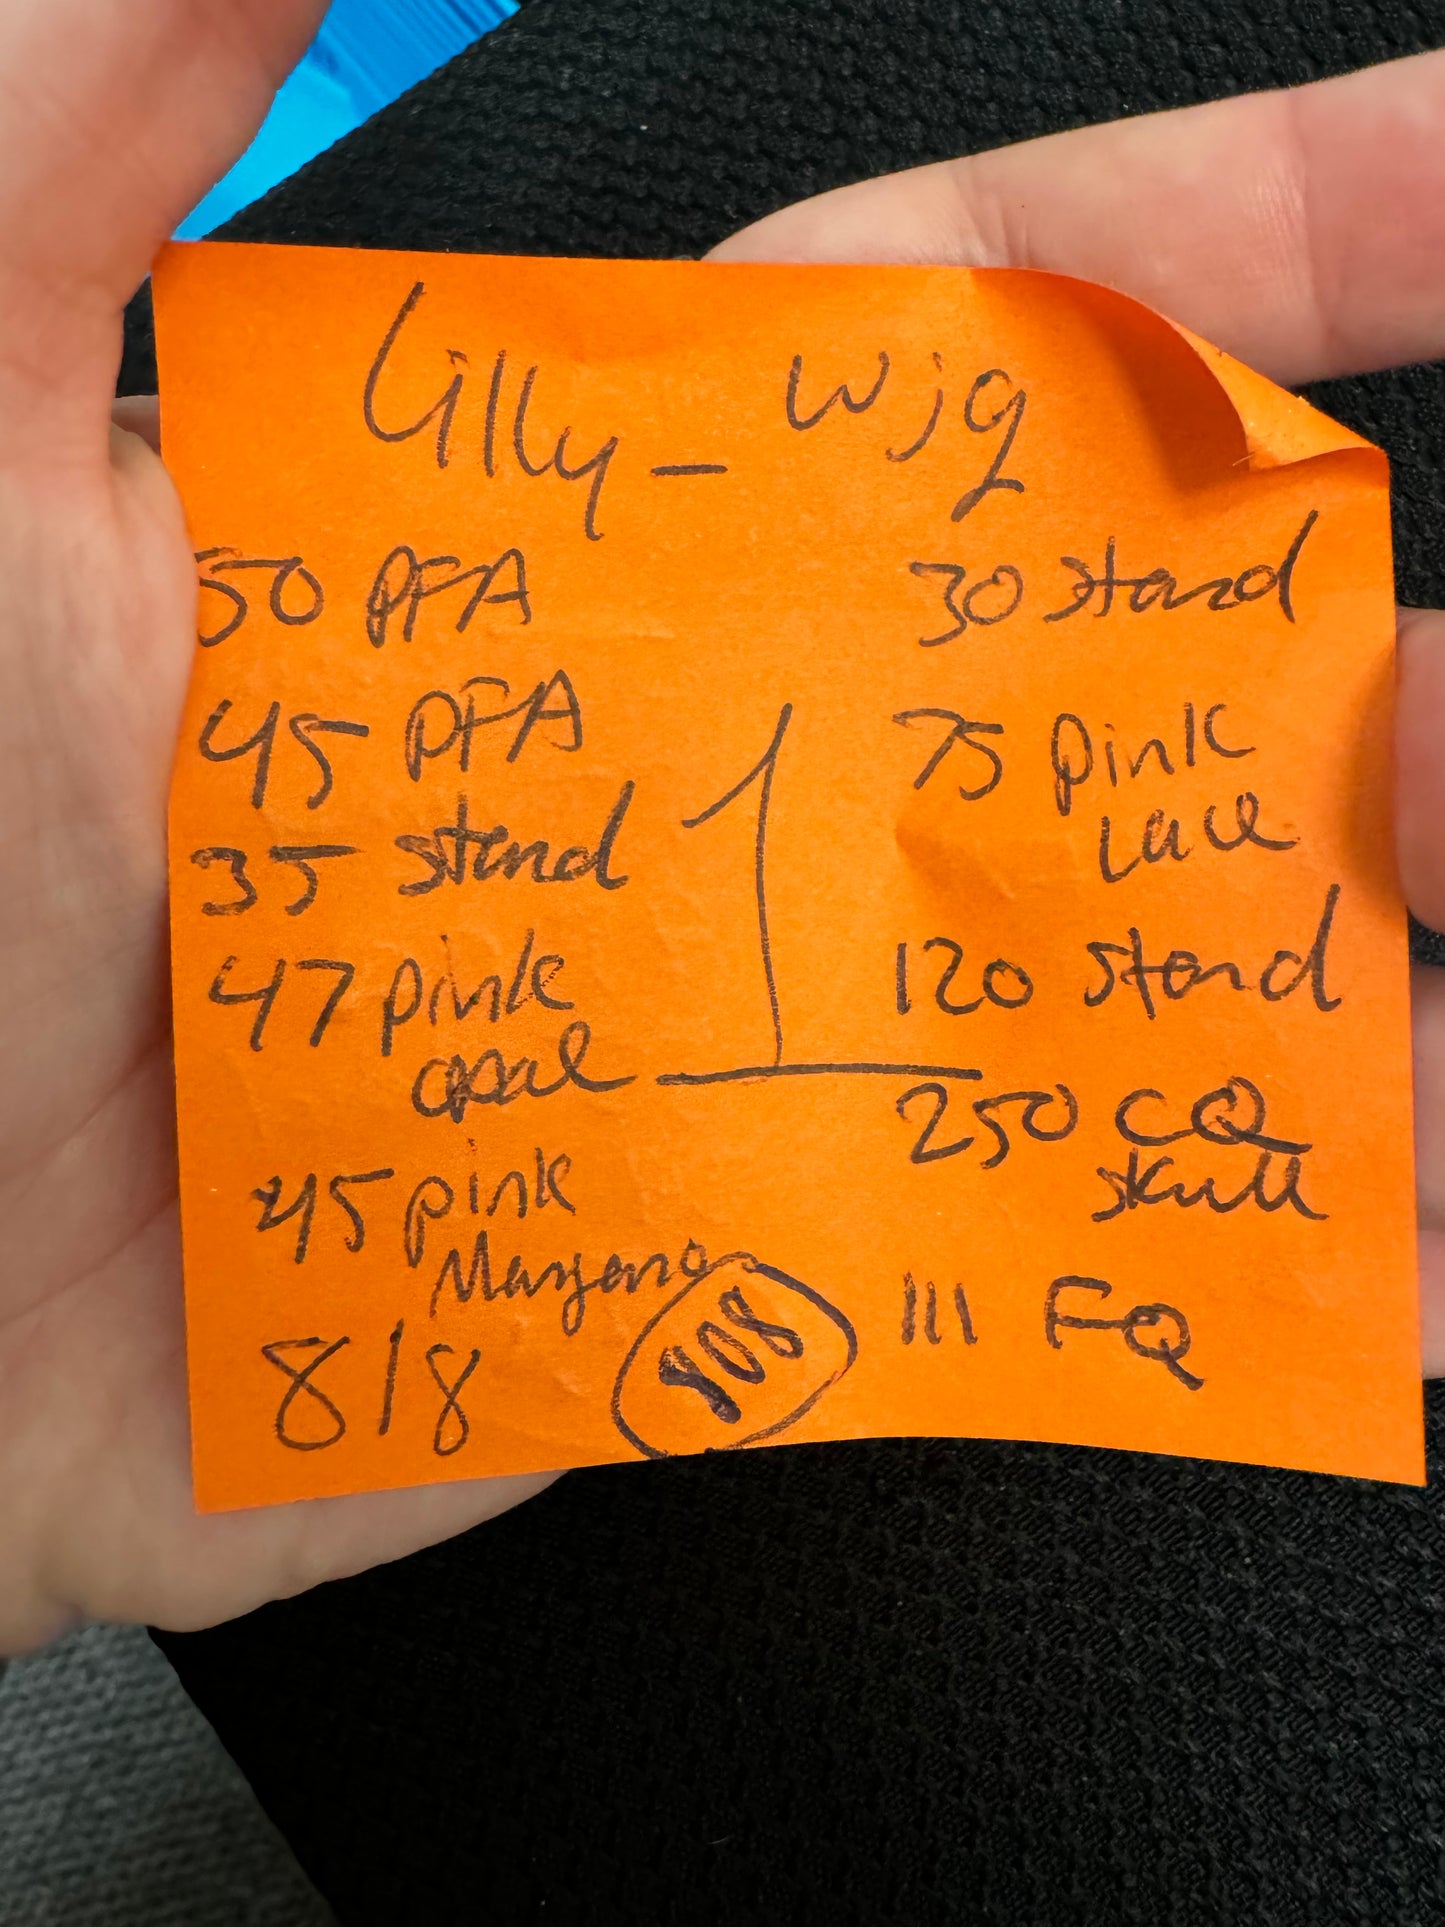 Lilly - wjg
50 PFA
45 PFA
35 stand
47 pink
opal
45 pink
Mangano
8/8
1
30 stand
75 pink
lace
120 stand
250 CQ
skull
111 FQ
808